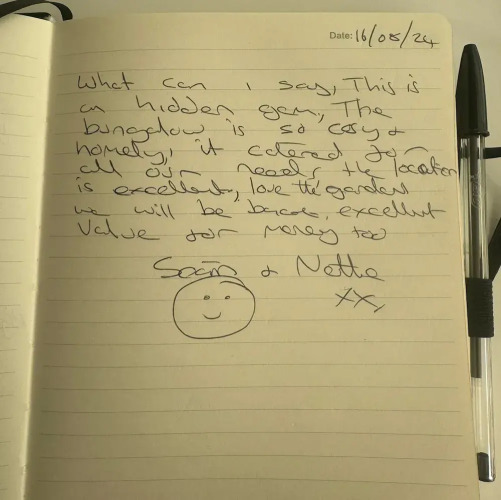 Date: 16/05/24
What can i say, This is
an hidden gem, The
bungalow is so cosy &
homely, it catered for
all our needs the location
is excellent, love the gardens
we will be back, excellent
Value for money too
& Nette
xx,